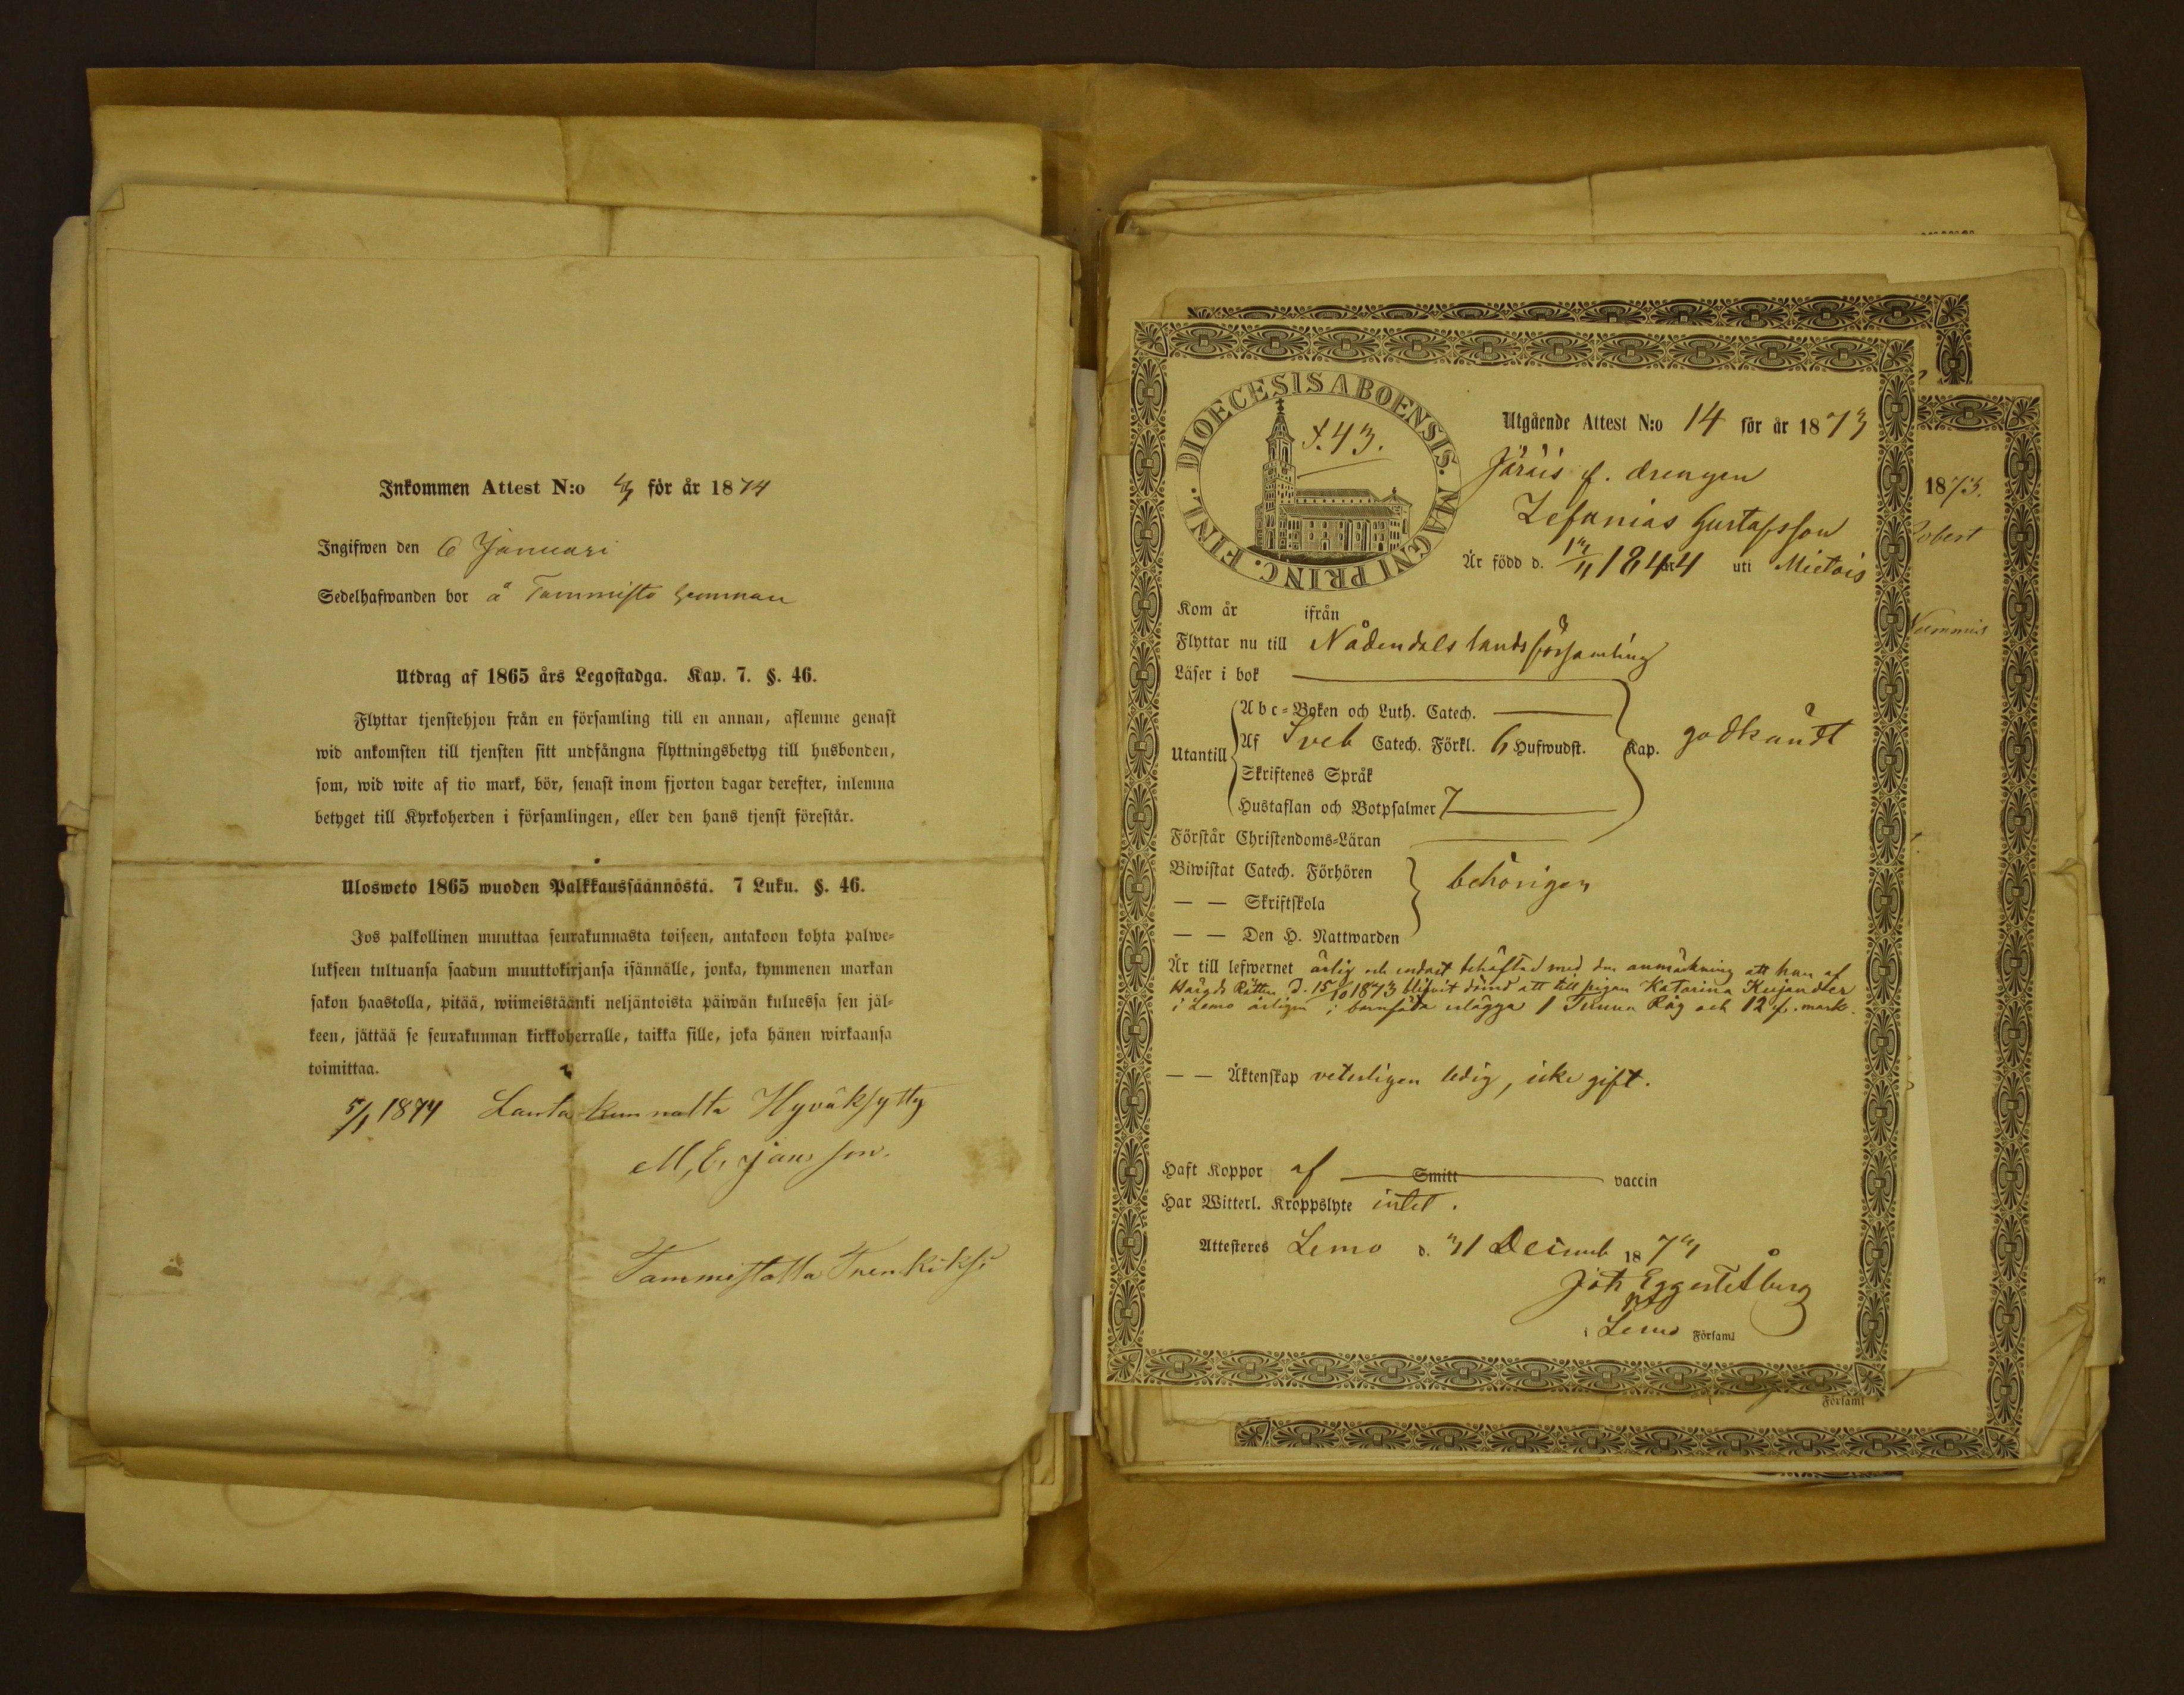 Inkommen Attest N:o 4 för år 1874
Ingifwen den 6 Januari
Sedelhafwanden bor å Tammisto hemman
Utdrag af 1865 års Legostadga. Kap. 7. §. 46.
Flyttar tjenstehjon från en församling till en annan, aflemne genast
wid ankomsten till tjensten sitt undfångna flyttningsbetyg till husbonden,
som, wid wite af tio mark, bör, senast inom fjorton dagar derefter, inlemna
betyget till Kyrkoherden i församlingen, eller den hans tjenst förestår.
Ulosweto 1865 wuoden Palkkaussäännöstä. 7 Luku. §. 46.
Jos palkollinen muuttaa seurakunnasta toiseen, antakoon kohta palwe-
lukseen tultuansa saadun muuttokirjansa isännälle, jonka, kymmenen markan
sakon haastolla, pitää, wiimeistäänki neljäntoista päiwän kuluessa sen jäl-
keen, jättää se seurakunnan kirkkoherralle, taikka sille, joka hänen wirkaansa
toimittaa.
5/1 1874 Lautakunnalta Hyväksytty
M. E. Janson.
Tammistolla Trenkiksi
DIOECESIS ABOENSIS. MAGNI PRINC. FINL.
S. 43.
Utgående Attest N:o 14 för år 1873
Järäis f. drengen
Zefanias Gustafsson
Är född d. 13/11 1844 uti Mietois
Kom år ifrån
Flyttar nu till Nådendals landsförsamling
Läser i bok
Utantill
Abc-Boken och Luth. Catech.
Af Sveb Catech. Förkl. 6 Hufwudst. Kap. godkändt
Skriftenes Språk
Hustaflan och Botpsalmer 7
Förstår Christendoms-Läran
Biwistat Catech. Förhören
— — Skriftskola
behörigen
— — Den H. Nattwarden
Är till lefwernet ärlig och endast behäftad med den anmärkning att han af
Härads Rätten d. 15/10 1873 blifvit dömd att till pigan Katarina Kujander
i Lemo årligen i barnföda erlägga 1 Tunna Råg och 12 f. mark.
— — Äktenskap veterligen ledig, icke gift.
Haft Koppor af Smitt vaccin
Har Witterl. Kroppslyte intet.
Attesteres Lemo d. 31 Decemb 1873
Joh
i Lemo Församl
1873.
Robert
Nummis
Församl